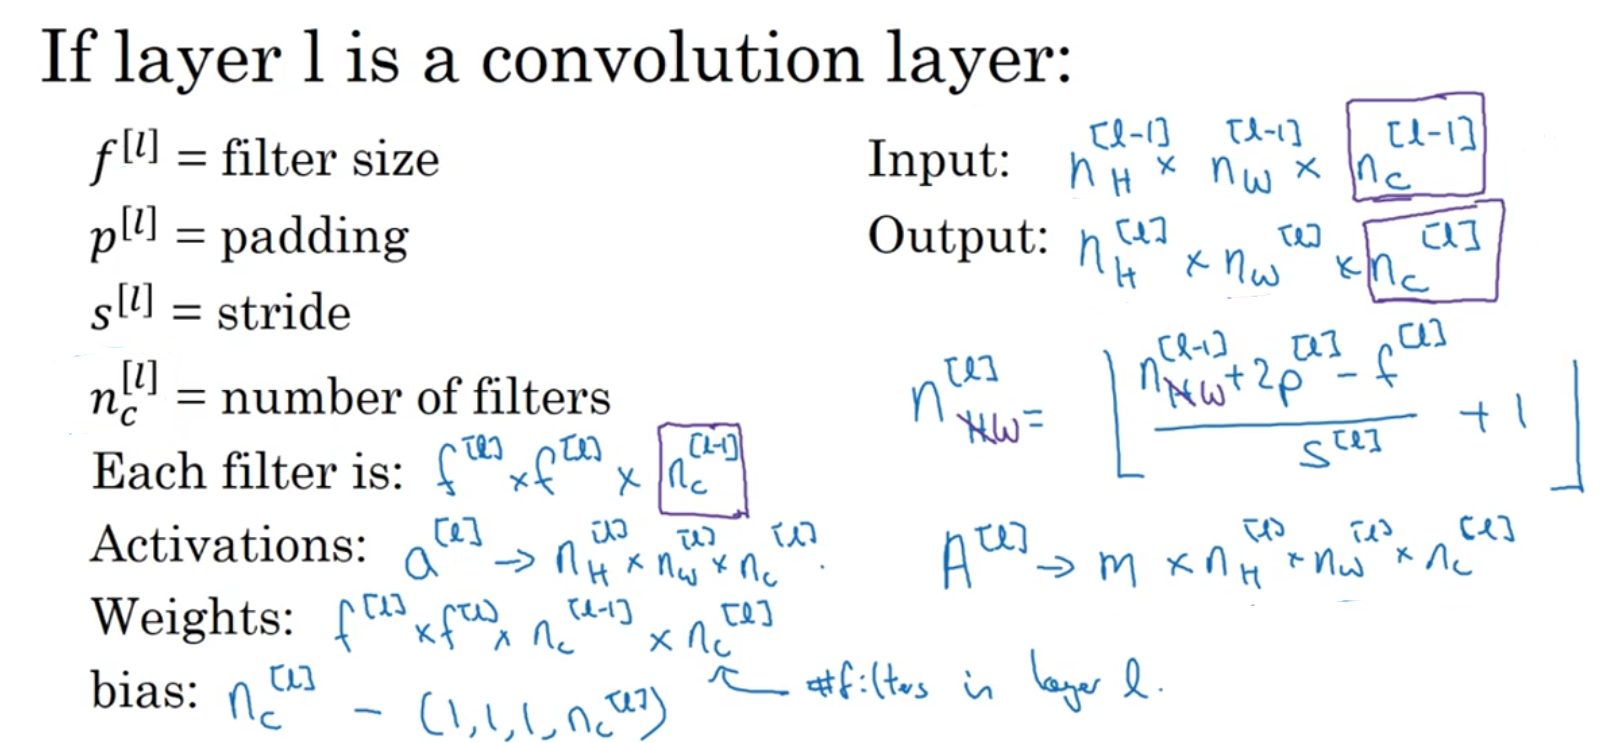 If layer l is a convolution layer:
f^[l] = filter size
p^[l] = padding
s^[l] = stride
n_c^[l] = number of filters
Each filter is: f^[l] × f^[l] × n_c^[l-1]
Activations: a^[l] → n_H^[l] × n_W^[l] × n_c^[l].
Weights: f^[l] × f^[l] × n_c^[l-1] × n_c^[l]
bias: n_c^[l] - (1,1,1,n_c^[l])
#filters in layer l.
Input: n_H^[l-1] × n_W^[l-1] × n_c^[l-1]
Output: n_H^[l] × n_W^[l] × n_c^[l]
n_W^[l] = ⌊(n_W^[l-1] + 2p^[l] - f^[l]) / s^[l] + 1⌋
A^[l] → m × n_H^[l] × n_W^[l] × n_c^[l]